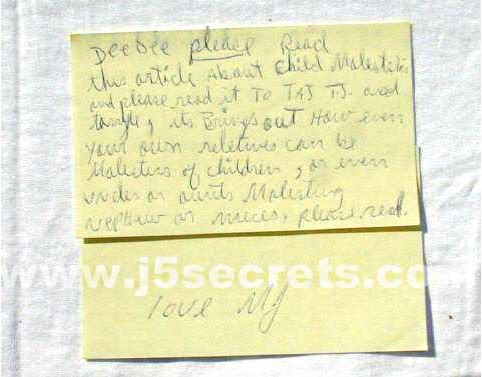 DeeDee please Read
this article About Child Molestation
and please read it To TAJ TJ. and
taryll, its Brings out How even
your own reletives can be
Molestors of children, or even
uncles or aunts Molesting
nephew or nieces. please read.
www.j5secrets.co
love MJ